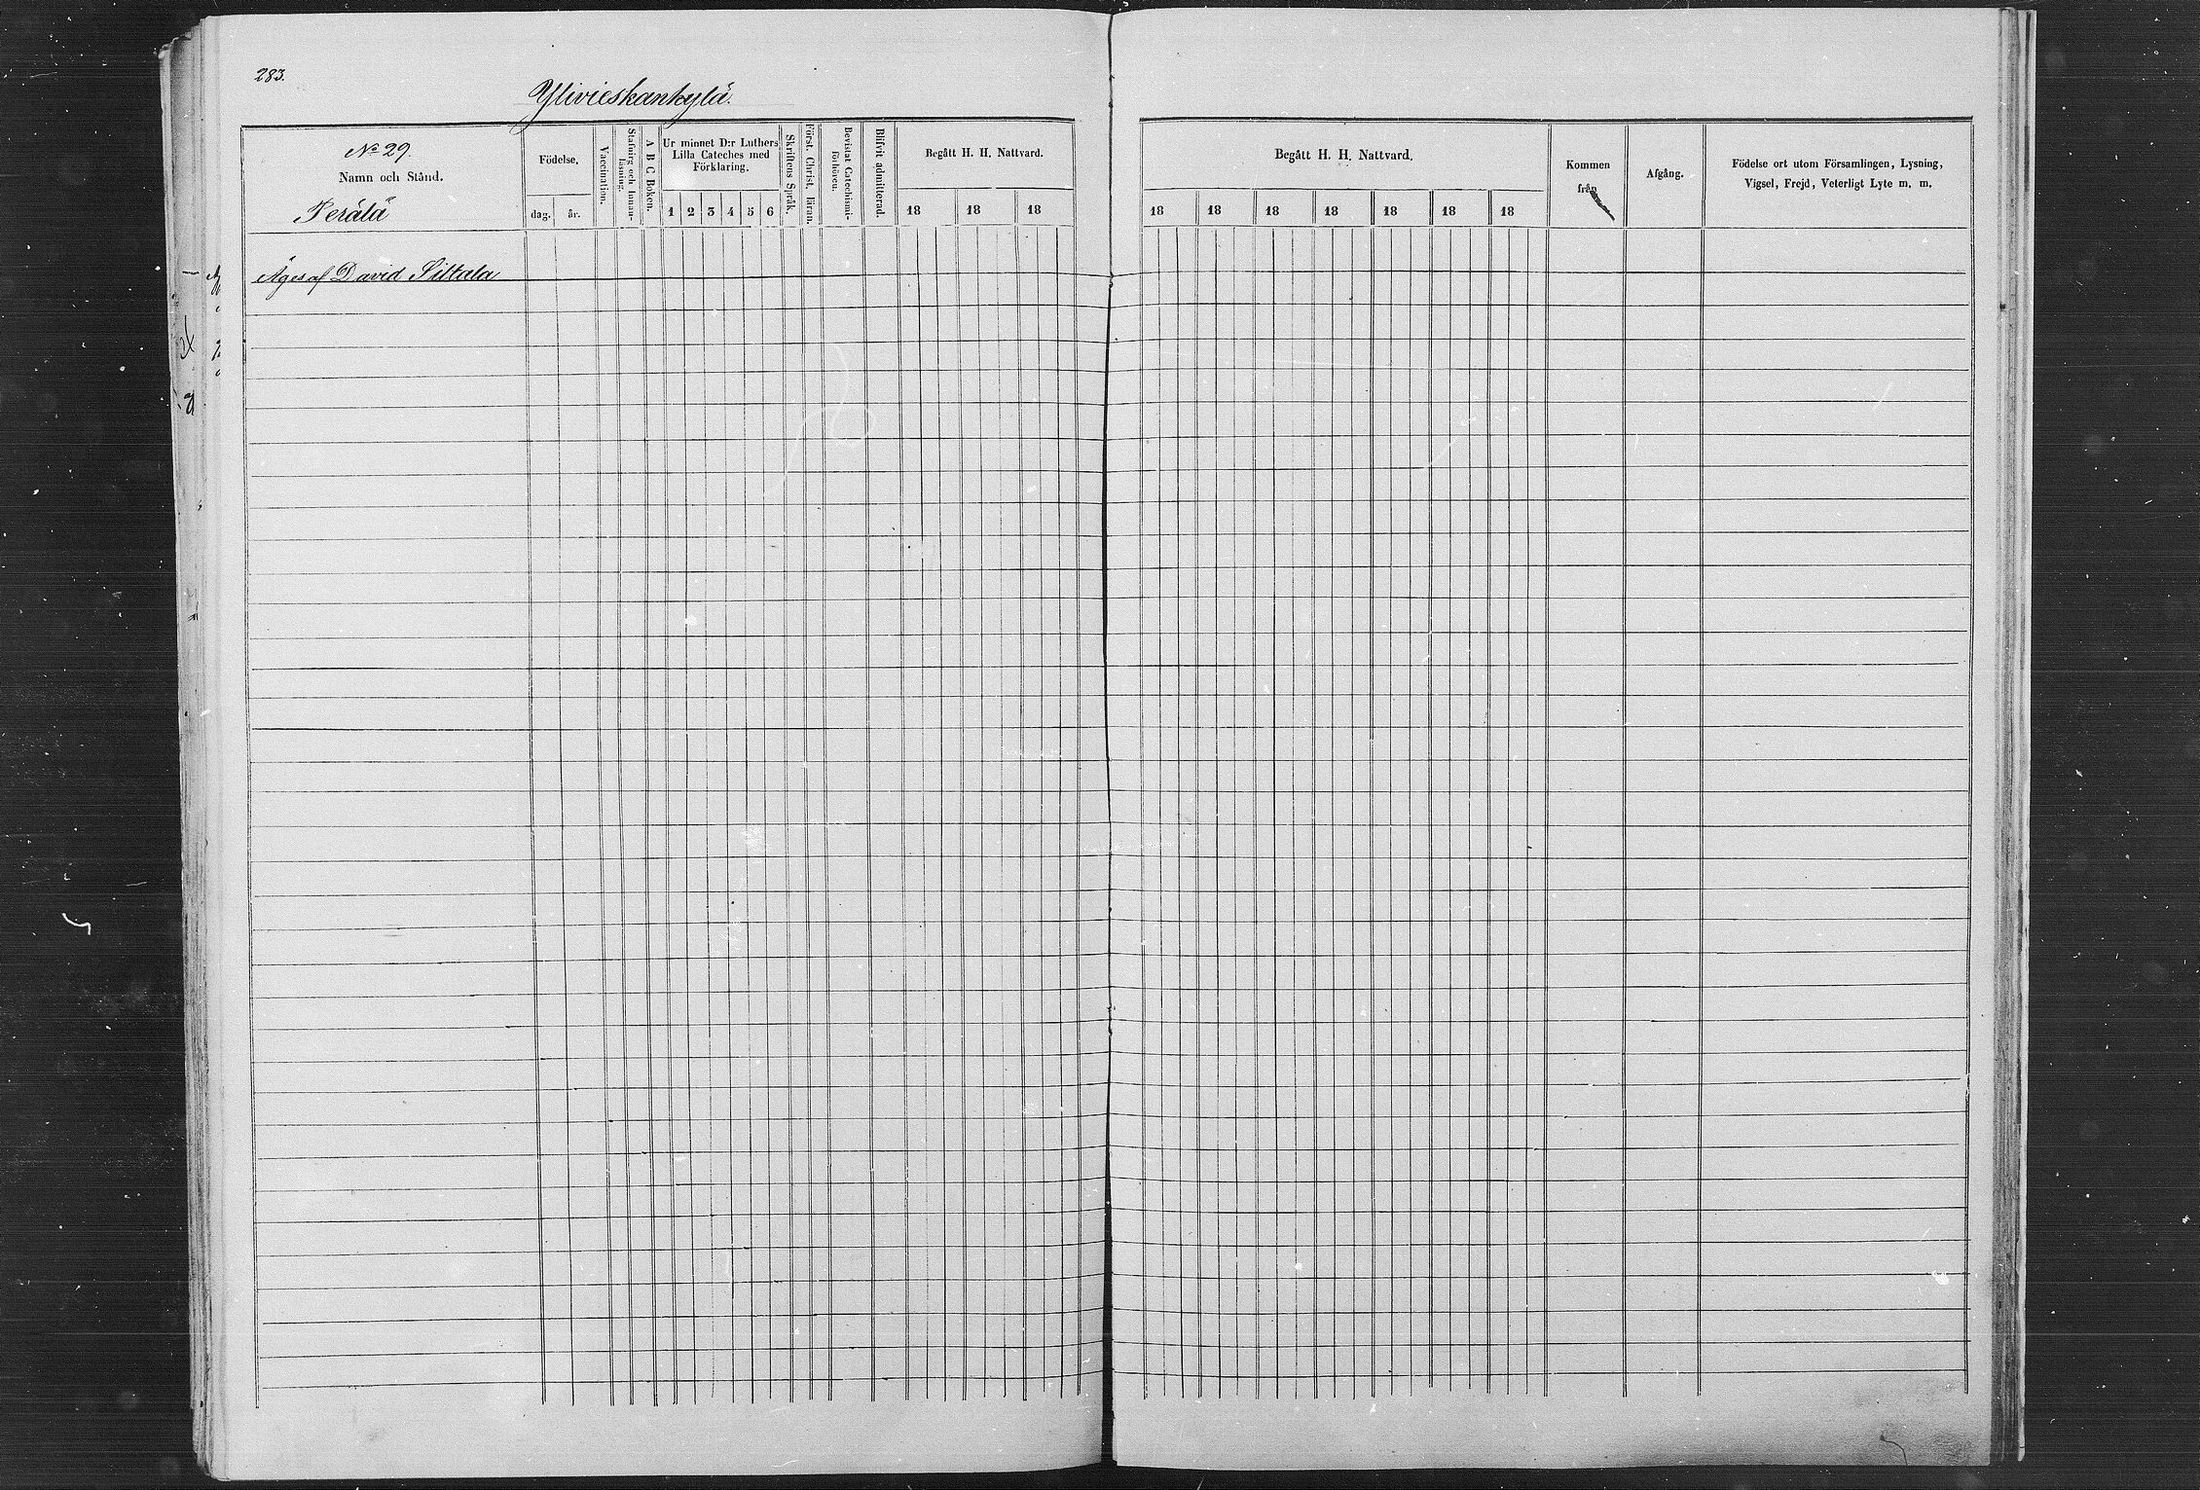 283.
Ylivieskankylä.
No 29.
Namn och Stånd.
Perälä
Födelse,
dag. år.
Vaccination.
Stafning och Innan-
läsning.
A B C Boken.
Ur minnet D:r Luthers
Lilla Cateches med
Förklaring.
1 2 3 4 5 6
Skriftens Språk.
Först. Christ. läran.
Bevistat Catechismi-
förhören.
Blifvit admitterad.
Begått H. H. Nattvard.
18 18 18
Begått H. H. Nattvard.
18 18 18 18 18 18 18
Kommen
från
Afgång.
Födelse ort utom Församlingen, Lysning,
Vigsel, Frejd, Veterligt Lyte m. m.
Äges af David Siltala